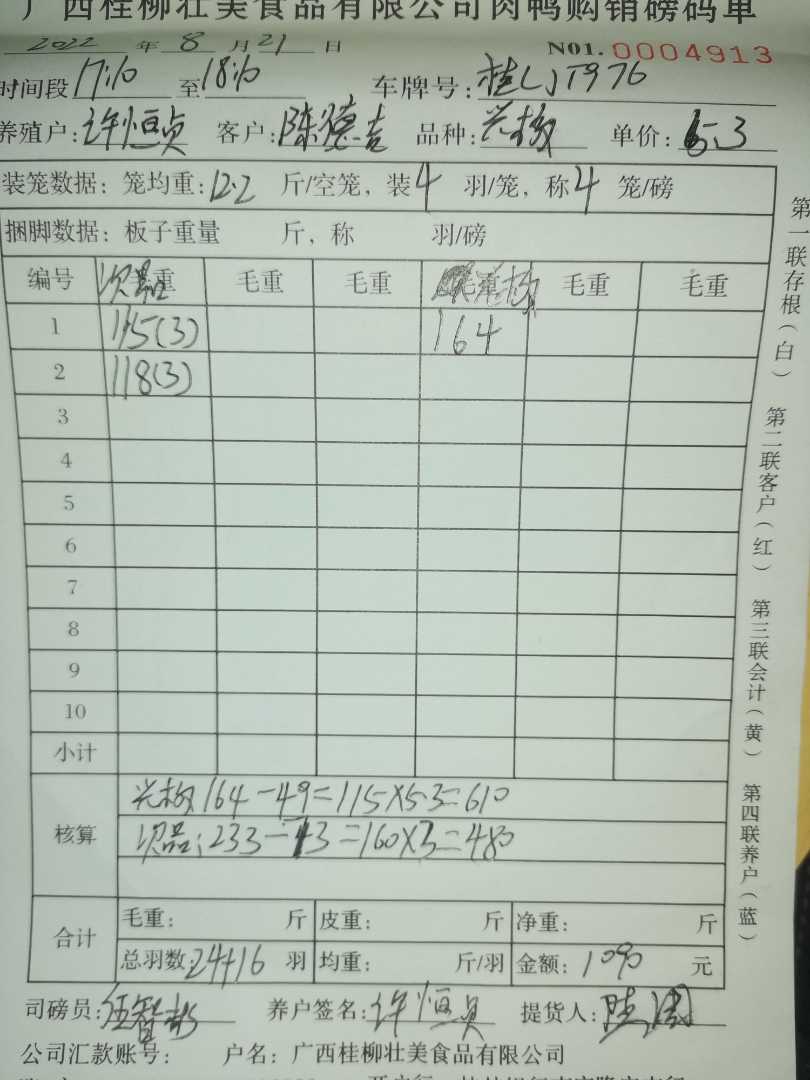 广西桂柳壮美食品有限公司肉鸭购销磅码单
2022 年 8 月 21 日 N01. 0004913
时间段 17:10 至 18:10 车牌号: 桂LJT976
养殖户: 许恒贞 客户: 陈德吉 品种: 单价: 5.3
装笼数据: 笼均重: 12.2 斤/空笼, 装 4 羽/笼, 称 4 笼/磅
捆脚数据: 板子重量 斤, 称 羽/磅
编号 次品 毛重 毛重 毛重 毛重 毛重
1 115(3) 164
2 118(3)
3
4
5
6
7
8
9
10
小计
核算 164-49=115×5.3=610
次品: 233-73=160×3=480
合计 毛重: 斤 皮重: 斤 净重: 斤
总羽数: 24+16 羽 均重: 斤/羽 金额: 1090 元
司磅员: 养户签名: 许恒贞 提货人:
公司汇款账号: 户名: 广西桂柳壮美食品有限公司
第一联存根(白) 第二联客户(红) 第三联会计(黄) 第四联养户(蓝)